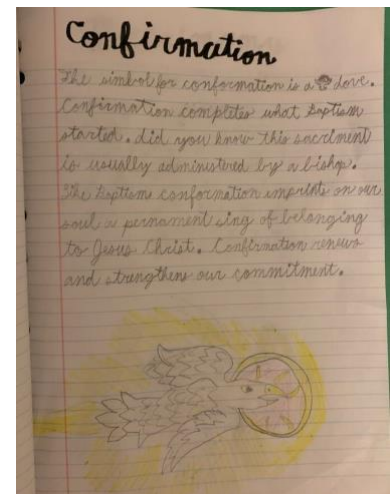 Confirmation
The simbol for conformation is a dove.
Confirmation completes what baptism
started. did you know this sacrlment
is usually administered by a bishop.
like baptism conformation imprints on our
soul a pernament sing of belonging
to Jesus Christ. Confirmation renews
and strengthens our commitment.